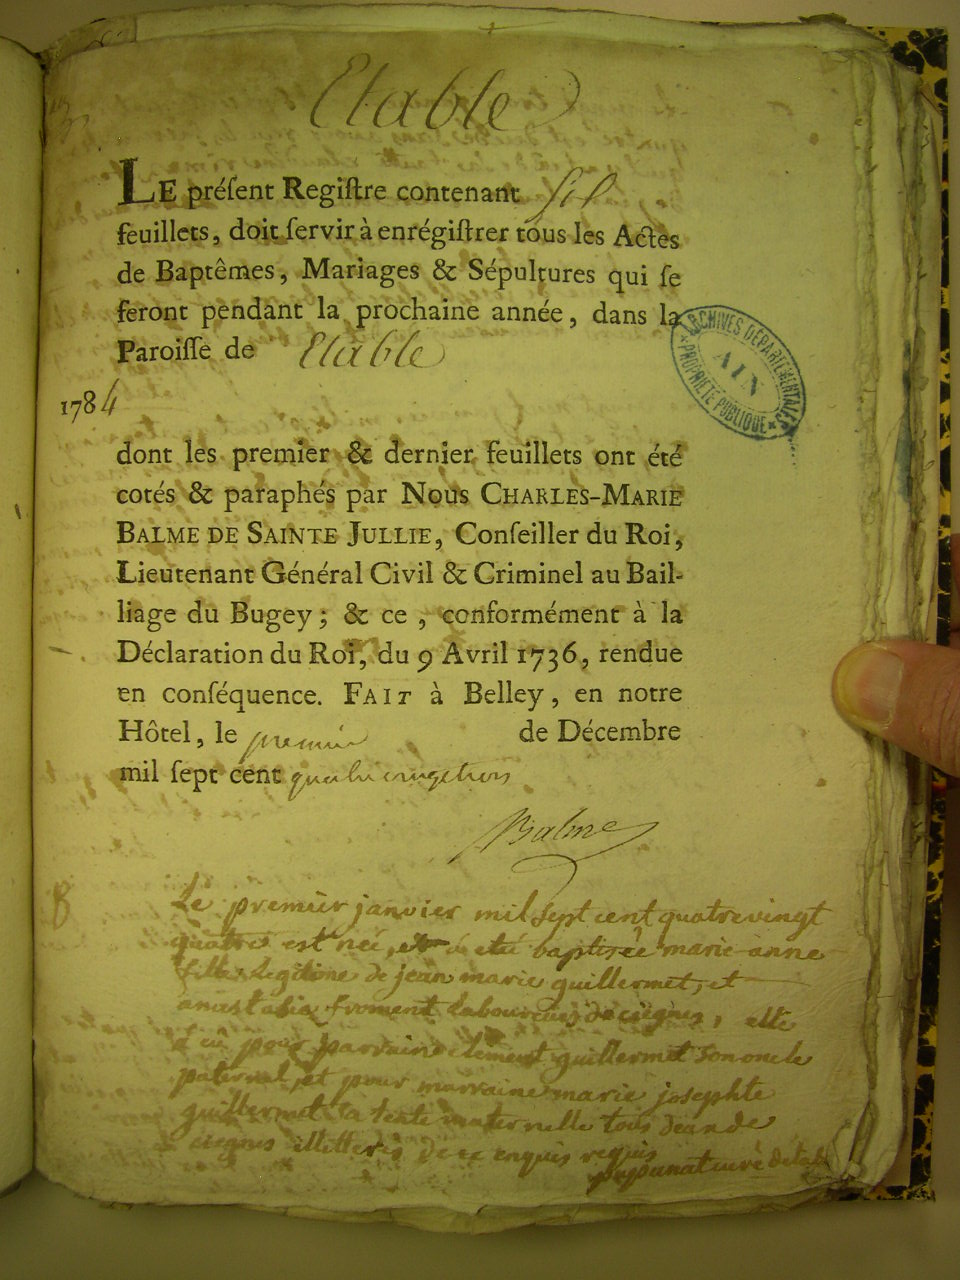 Etable
LE préſent Regiſtre contenant six
feuillets, doit ſervir à enrégiſtrer tous les Actes
de Baptêmes, Mariages & Sépultures qui ſe
feront pendant la prochaine année, dans la
Paroiſſe de Etable
1784
dont les premier & dernier feuillets ont été
cotés & paraphés par Nous CHARLES-MARIE
BALME DE SAINTE JULLIE, Conſeiller du Roi,
Lieutenant Général Civil & Criminel au Bail-
liage du Bugey ; & ce , conformément à la
Déclaration du Roi, du 9 Avril 1736, rendue
en conſéquence. FAIT à Belley, en notre
Hôtel, le premier de Décembre
mil ſept cent quatre vingt trois
Balme
ARCHIVES DÉPARTEMENTALES
AIN
PROPRIÉTÉ PUBLIQUE
B
Le premier janvier mil sept cent quatrevingt
quatre est neé, et a eté baptisée marie anne
fille legitime de jean marie guillermet, et
anastasie froment laboureurs de ciegnes, elle
a eu pour parrain clement guillermet son oncle
paternel, et pour marraine marie josephte
guillermet sa tente maternelle tous deux de
ciegnes illetterés de ce enquis requis